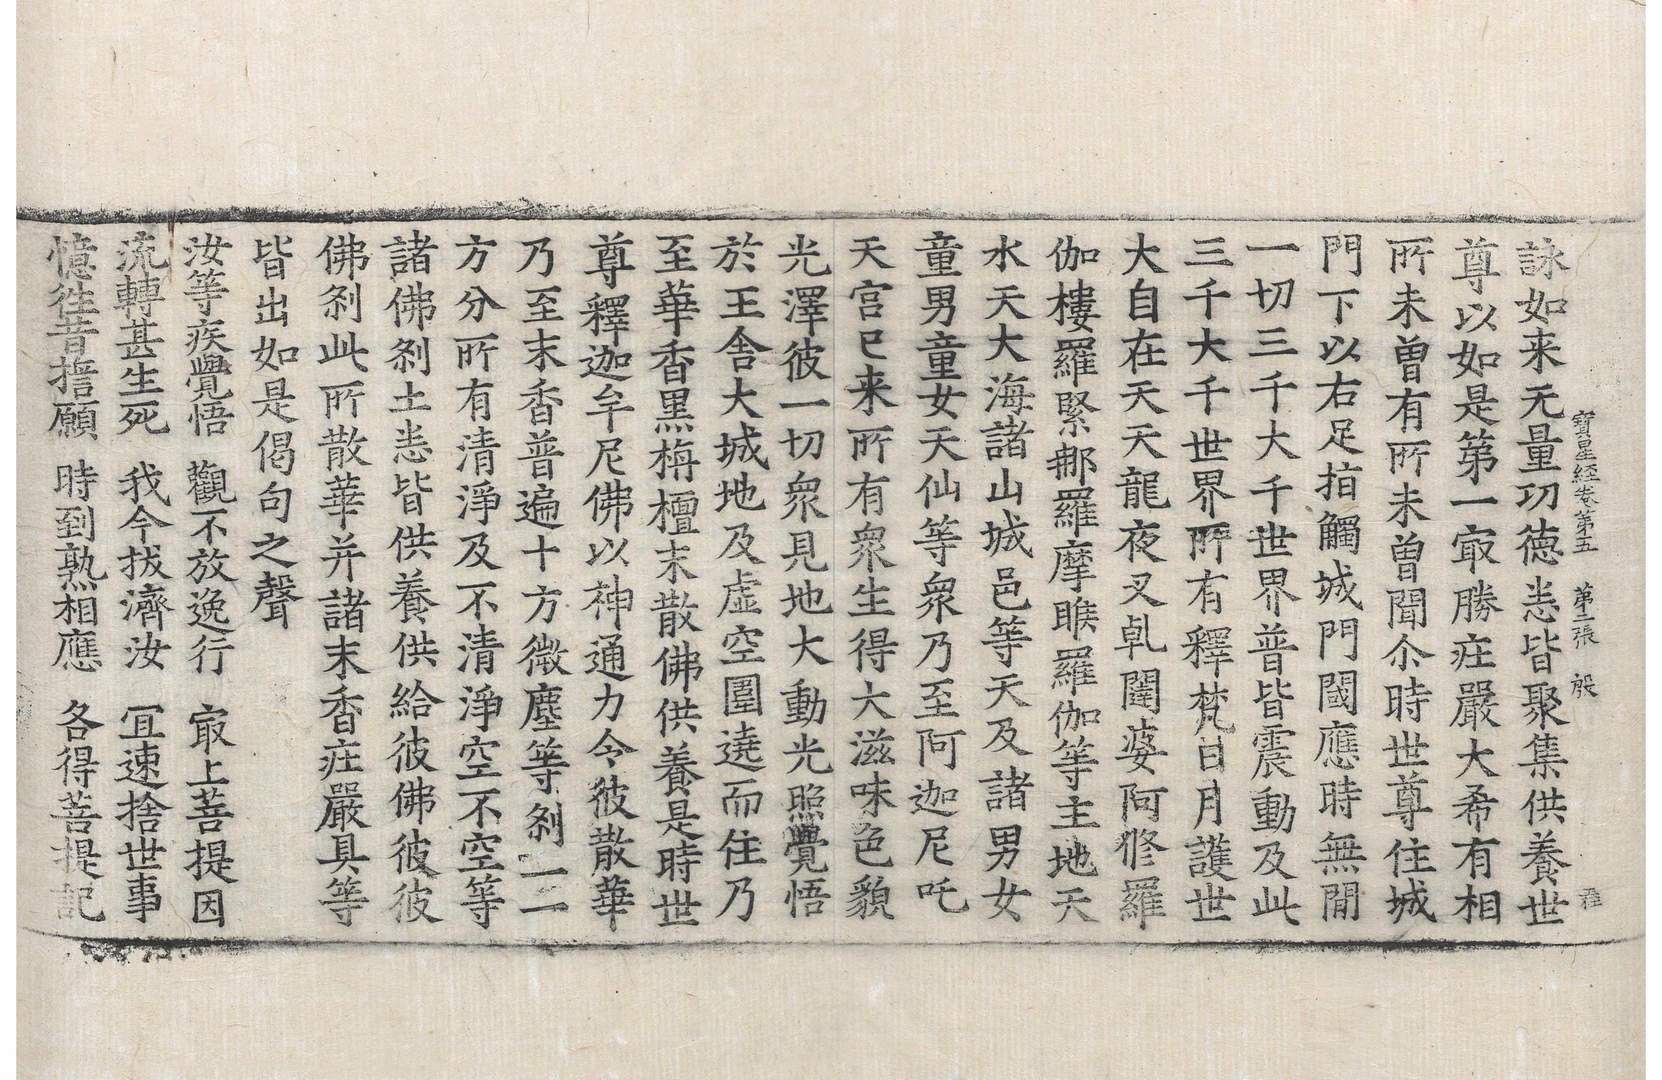 寶星経卷第五　第二張　殷
詠如来无量功德悉皆聚集供養世
尊以如是第一㝡勝庄嚴大希有相
所未曾有所未曾聞尒時世尊住城
門下以右足拍觸城門閫應時無閒
一切三千大千世界普皆震動及此
三千大千世界所有釋梵日月護世
大自在天天龍夜叉乹闥婆阿修羅
伽樓羅緊那羅摩睺羅伽等主地天
水天大海諸山城邑等天及諸男女
童男童女天仙等衆乃至阿迦尼吒
天宫已来所有衆生得大滋味色貌
光澤彼一切衆見地大動光照覺悟
於王舎大城地及虛空圍遶而住乃
至華香黒栴檀末散佛供養是時世
尊釋迦牟尼佛以神通力令彼散華
乃至末香普遍十方微塵等刹一二
方分所有清淨及不清淨空不空等
諸佛刹土悉皆供養供給彼佛彼彼
佛刹此所散華并諸末香庄嚴具等
皆出如是偈句之聲
汝等疾覺悟　觀不放逸行　㝡上菩提因
流轉甚生死　我今拔濟汝　冝速捨世事
憶往昔擔願　時到熟相應　各得菩提記